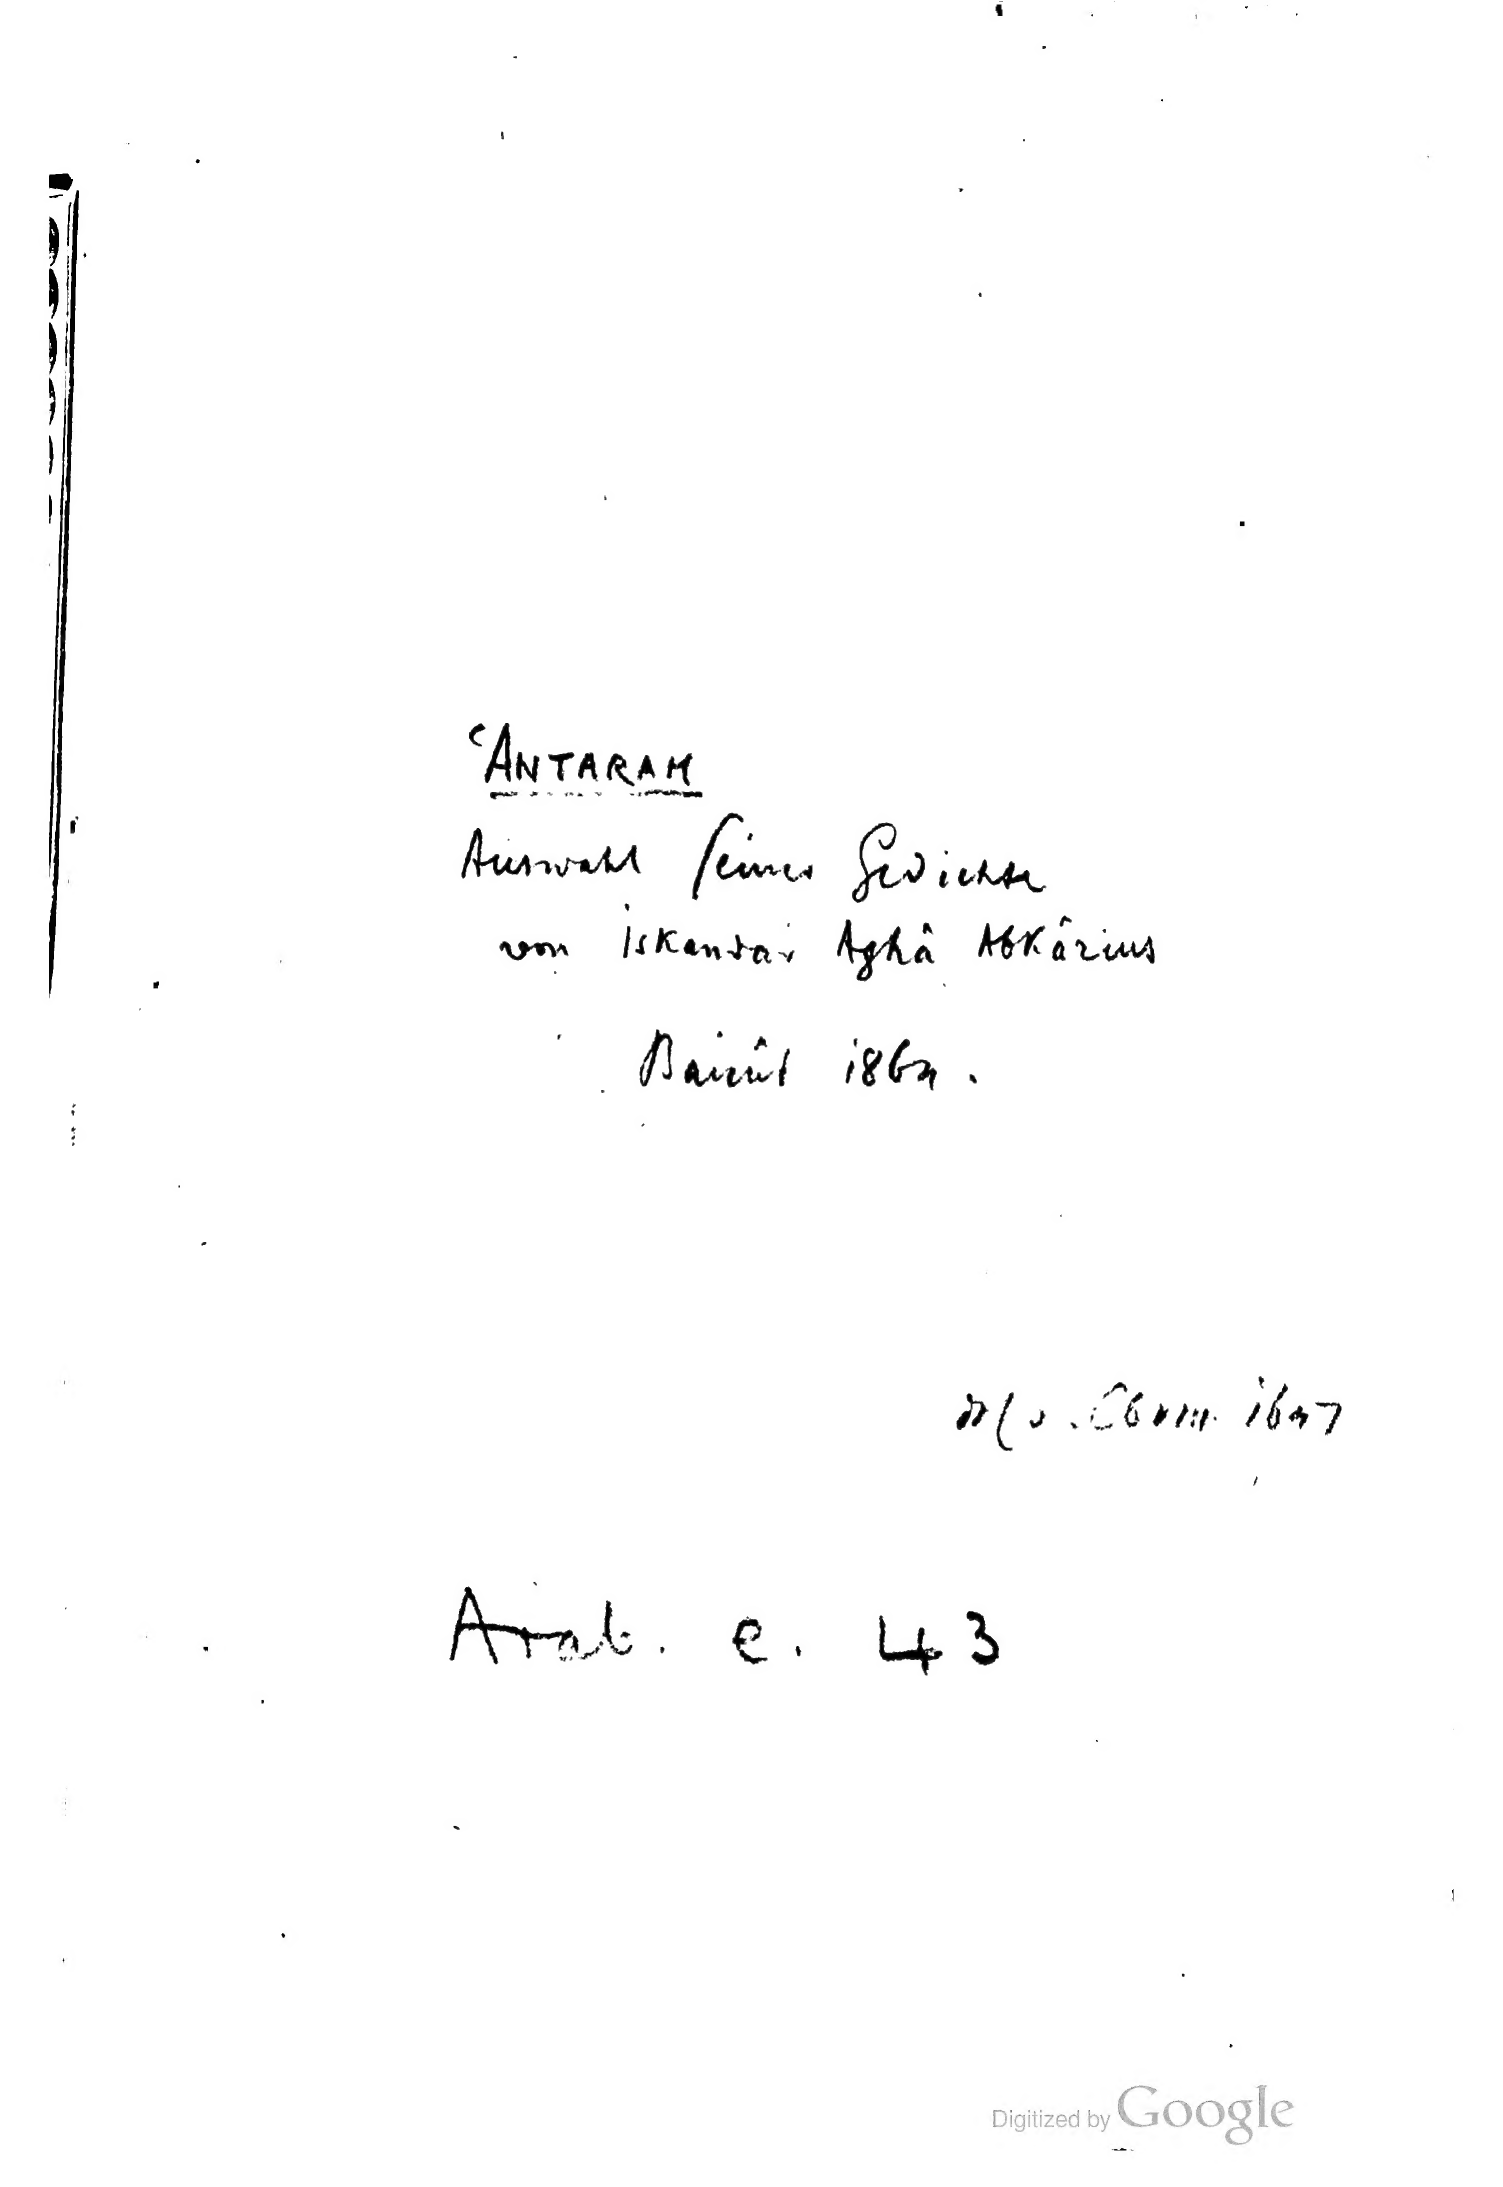 ʿANTARAH
Auswahl seiner Gedichte
von Iskandar Aghâ Abkârius
Bairût 1864.
Arab. e. 43
Digitized by Google